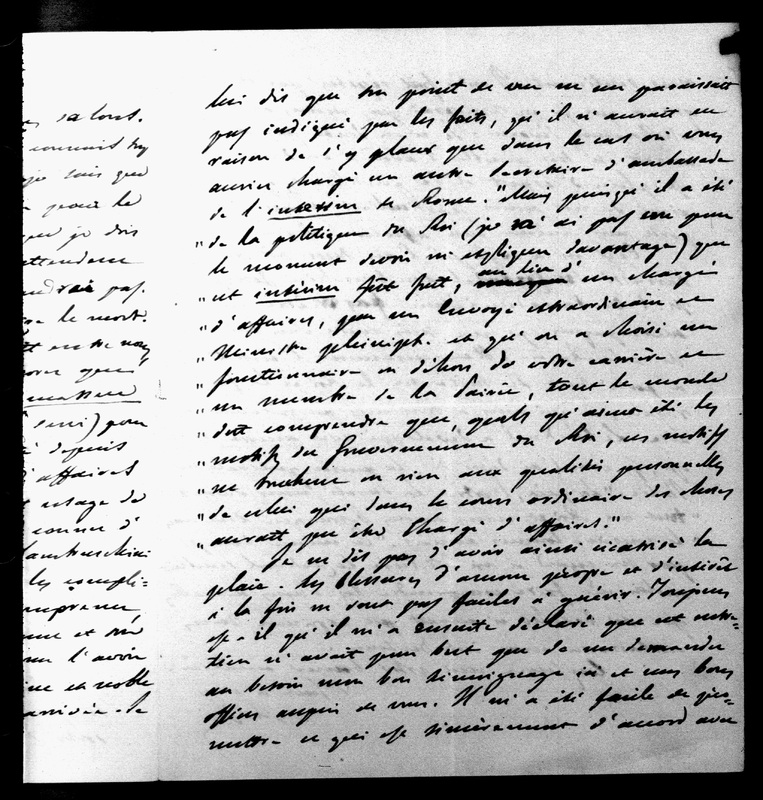 salons.
connait
je sais que
pour le
que je dois
attendem
drai pas.
le mort.
entre nous
) pour
depuis
affaires
usage de
connu d'
Lambruschini
les compli-
me et
l'avoir
et noble
arrivée. Je
lui dis que son point de vue ne me paraissait
pas indiqué par les faits, qu'il n'aurait eu
raison de s'y placer que dans le cas où vous
auriez chargé un autre Secrétaire d'ambassade
de l'interim de Rome. "Mais puisqu'il a été
" de la politique du Roi (je n'ai pas cru pour
le moment devoir m'expliquer davantage) que
" cet intérim fût fait, au lieu d' un chargé
" d'affaires, par un Envoyé extraordinaire et
" Ministre plénipot. et qu'on a choisi un
" fonctionnaire en dehors de votre carrière et
" un membre de la Pairie, tout le monde
" doit comprendre que, quels qu'aient été les
" motifs du Gouvernement du Roi, ces motifs
" ne touchent en rien aux qualités personnelles
" de celui qui dans le cours ordinaire des choses
" aurait pu être Chargé d'affaires."
Je ne dis pas d'avoir ainsi cicatrisé la
plaie. Les blessures d'amour propre et d'intérêt
à la fois ne sont pas faciles à guérir. Toujours
est-il qu'il m'a ensuite déclaré que cet entre-
tien n'avait pour but que de me demander
au besoin mon bon témoignage ici et mes bons
offices auprès de vous. Il m'a été facile de pro-
mettre ce qui est sincèrement d'accord avec